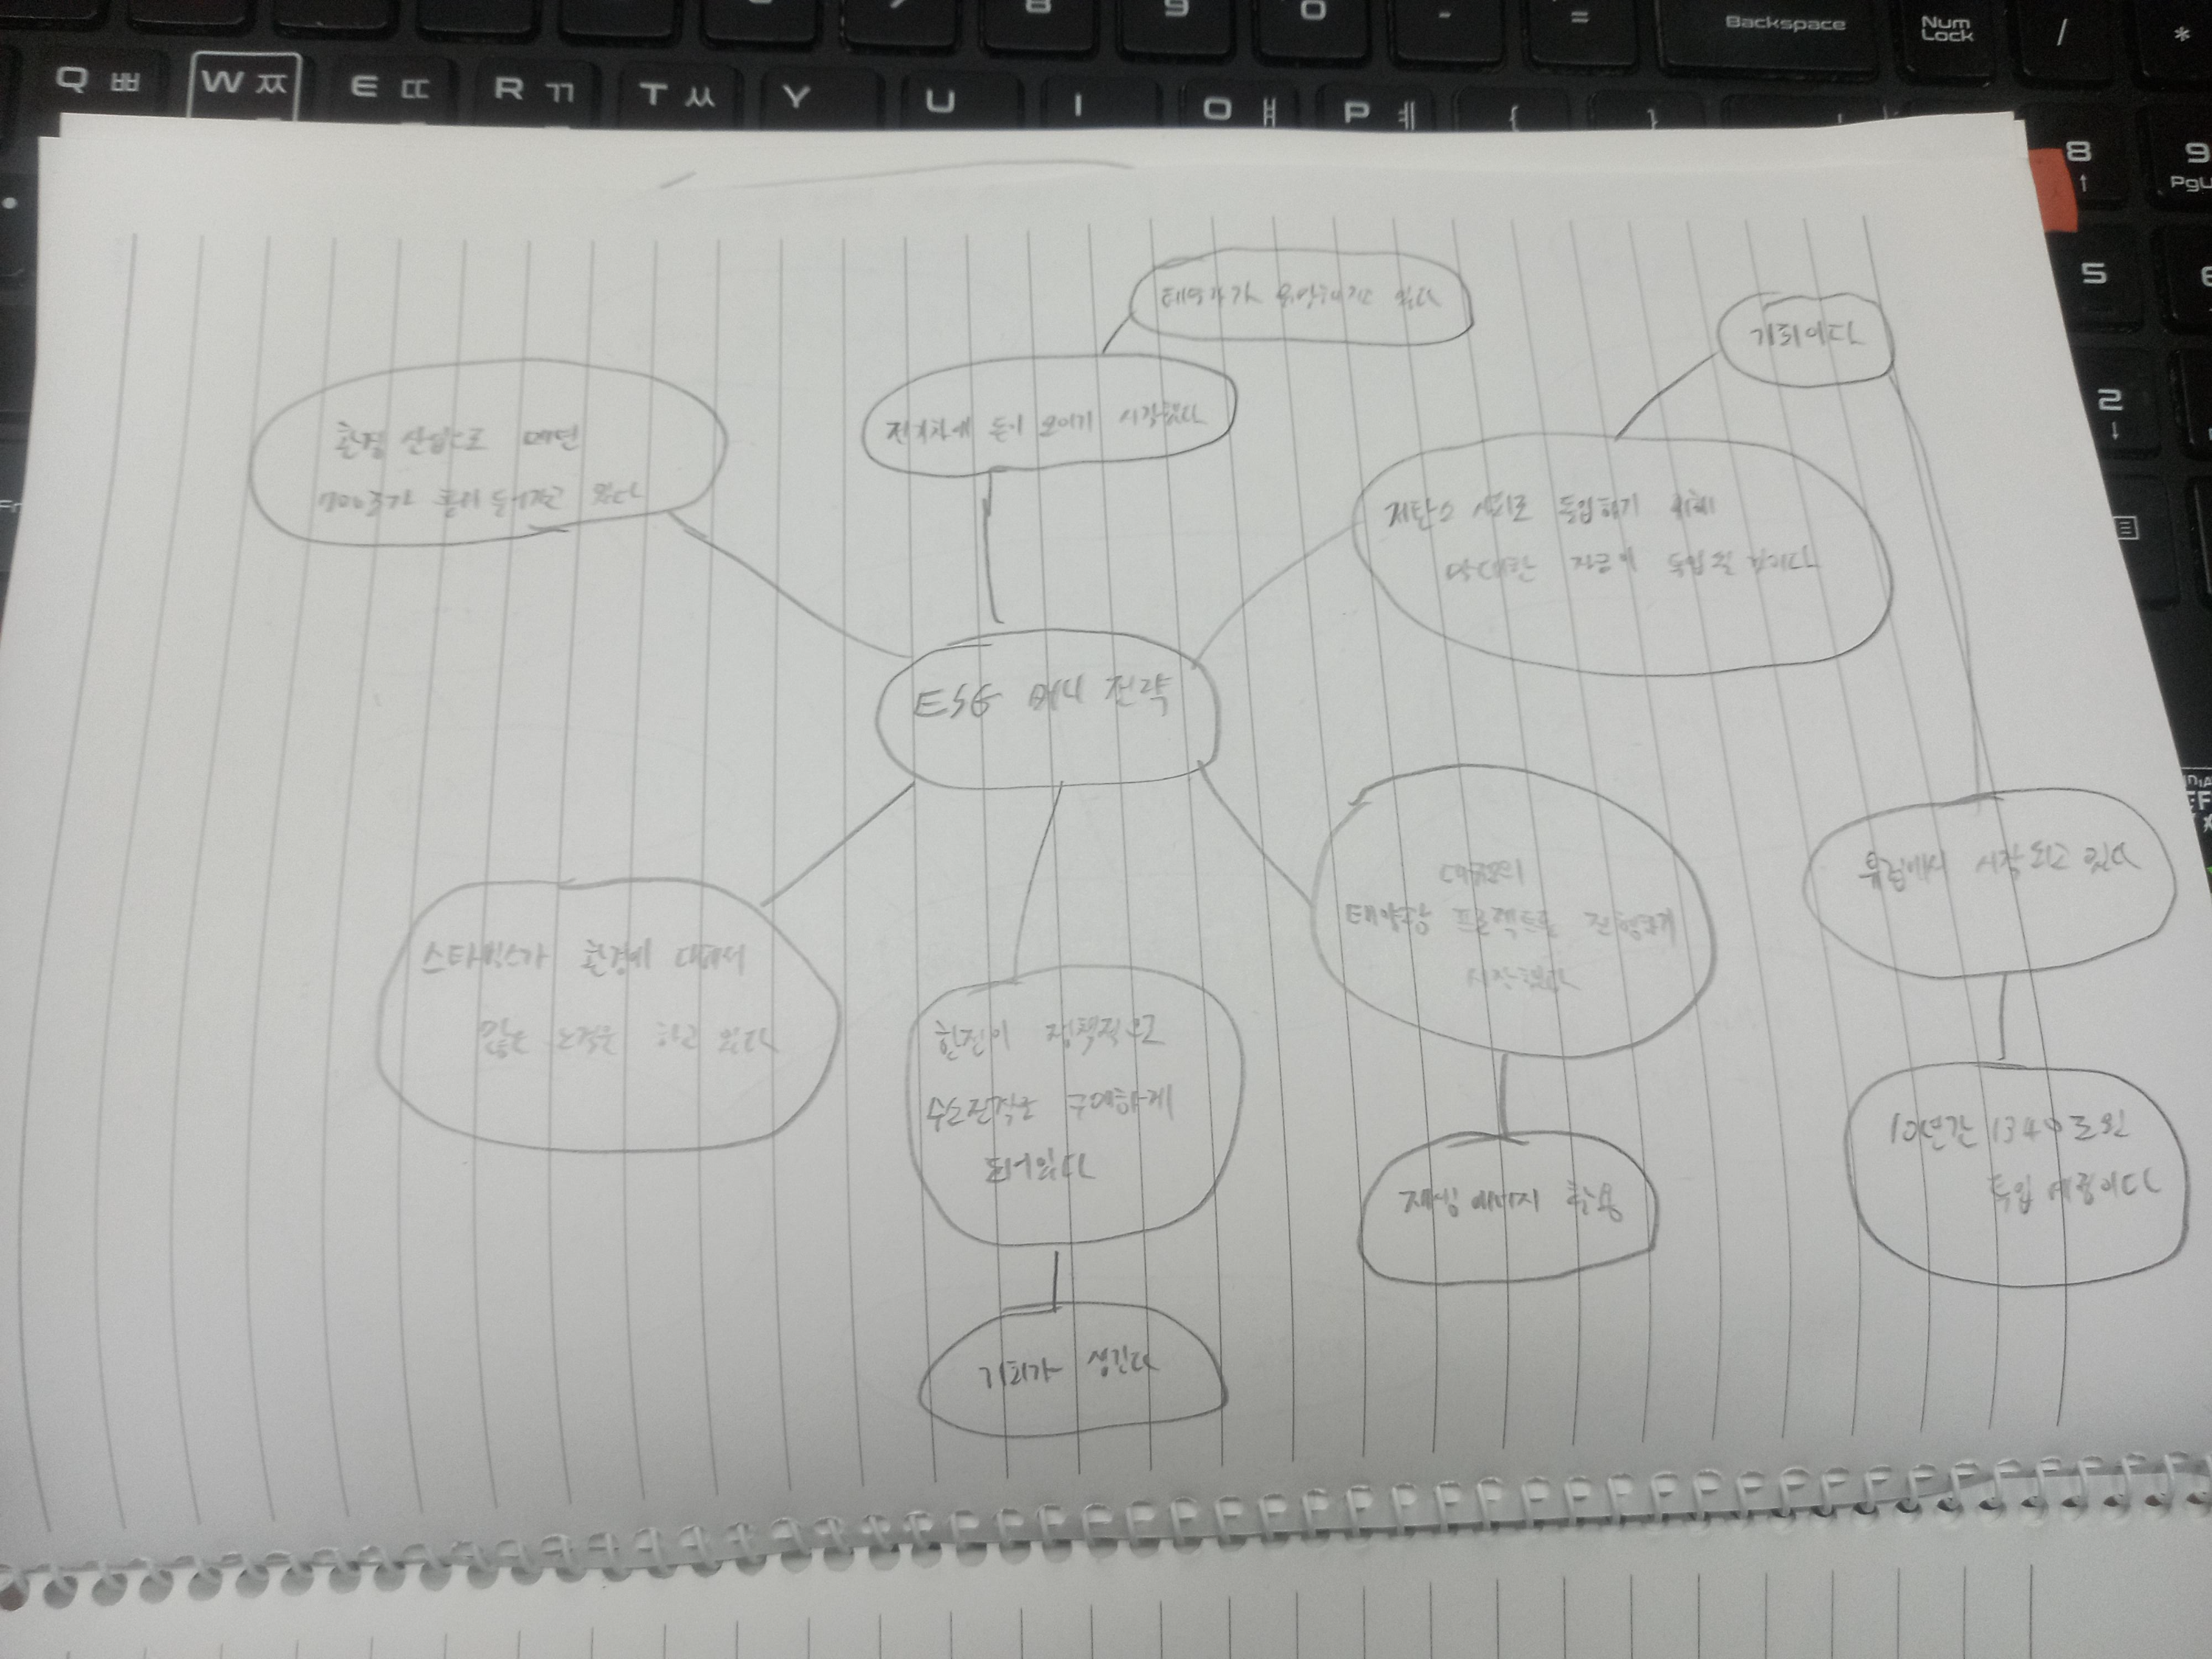 Backspace
Num
Lock
/
*
Q ㅃ
W ㅉ
E ㄸ
R ㄲ
T ㅆ
Y
U
I
O ㅒ
P ㅖ
{
}
8
9
5
2
기회이다
전기차에 돈이 모이기 시작했다
환경 산업으로 매년
700조가 흘러 들어가고 있다
저탄소 사회로 돌입하기 위해
막대한 자금이 투입될 것이다
ESG 머니 전략
유럽에서 시작되고 있다
태양광 프로젝트를 진행하기
시작했다
스타벅스가 환경에 대해서
많은 노력을 하고 있다
한전이 정책적으로
수소전력을 구매하게
되어있다
10년간 1340조원
투입 예정이다
재생 에너지 활용
기회가 생긴다